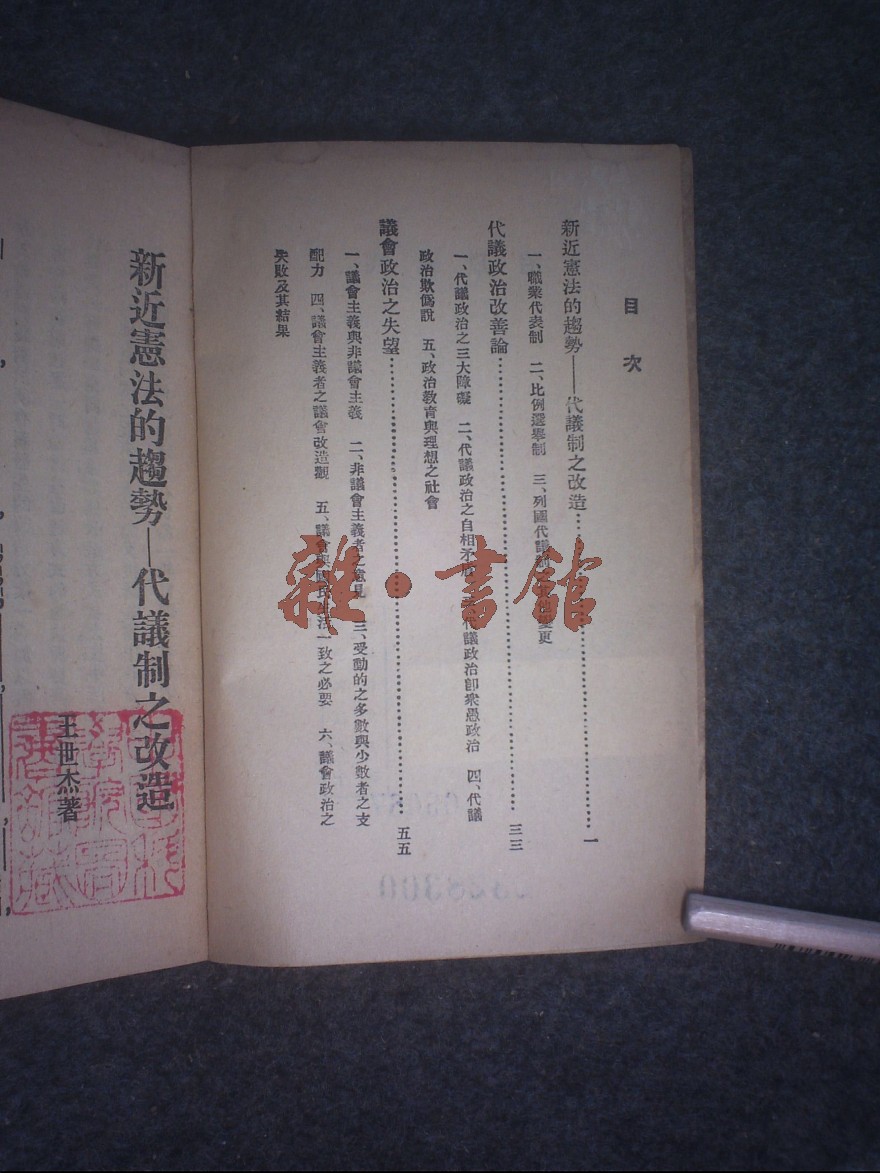 目次
新近憲法的趨勢——代議制之改造……一
一、職業代表制 二、比例選舉制 三、列國代議制變更
代議政治改善論……三三
一、代議政治之三大障礙 二、代議政治之自相矛盾 代議政治卽衆愚政治 四、代議
政治欺僞說 五、政治教育與理想之社會
議會政治之失望……五五
一、議會主義與非議會主義 二、非議會主義者之意見 三、受動的之多數與少數者之支
配力 四、議會主義者之議會改造觀 五、議會與國民生活一致之必要 六、議會政治之
失敗及其結果
新近憲法的趨勢—代議制之改造
王世杰著
雜·書館